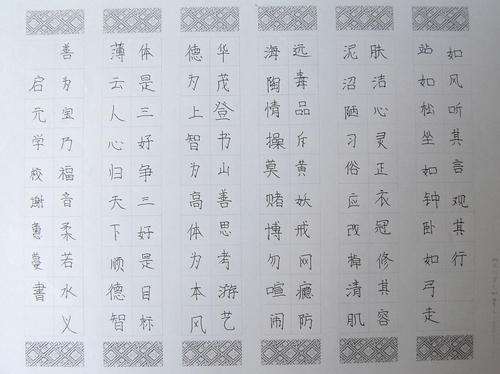 启元学校谢惠蔓書
善为宝乃福音柔若水义
薄云人心归天下顺德智
体是三好争三好是目标
德为上智为高体为本风
华茂登书山善思考游艺
海陶情操莫赌博勿喧闹
远毒品斥黄妖戒网瘾防
泥沼陋习俗应改掉清肌
肤洁心灵正衣冠修其容
站如松坐如钟卧如弓走
如风听其言观其行